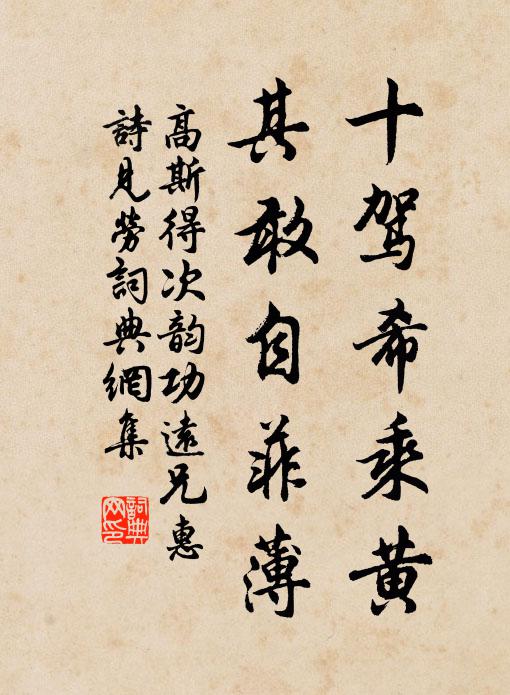 十驾希乘黄
其敢自菲薄
高斯得次韵功远兄惠
詩見勞詞典網集
詞典网印